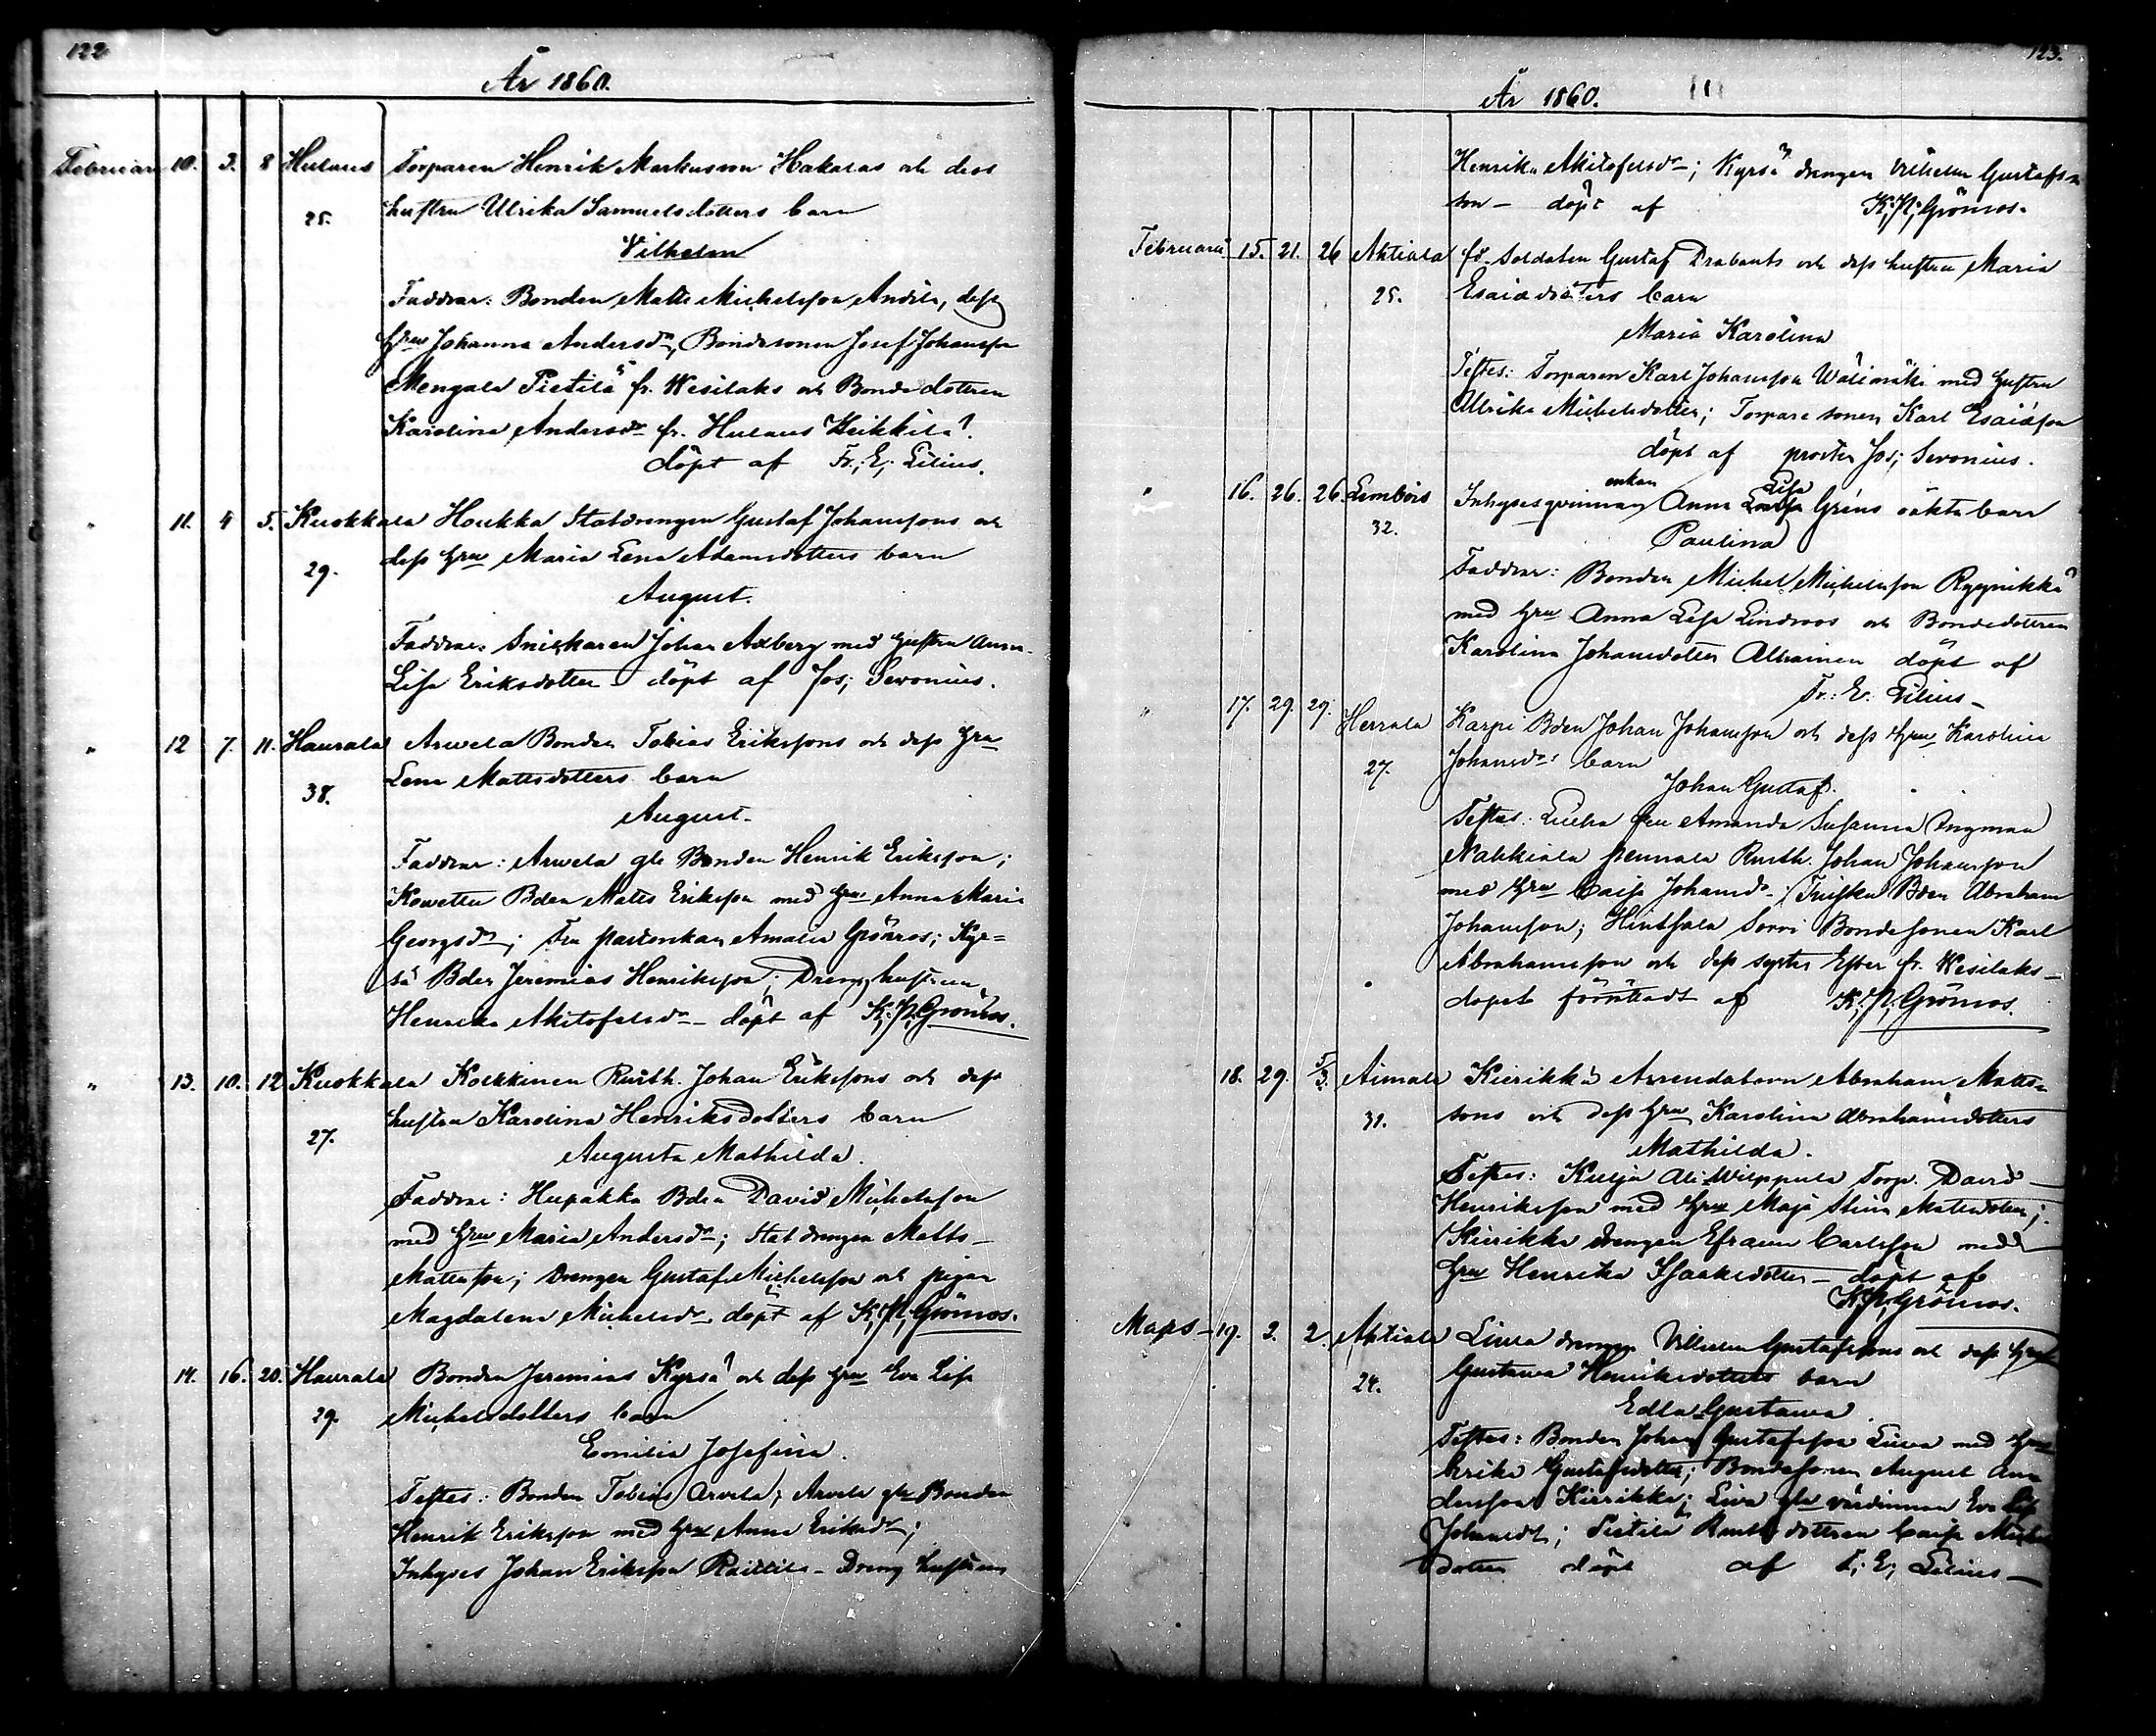 122
År 1860.
Februari 10. 3. 8 Hulaus Torparen Henrik Markusson Hakalas och dess
25. hustru Ulrika Samuelsdotters barn
Vilhelm
Faddrar: Bonden Matts Michelsson Andila, dess
Hru Johanna Andersdr, Bondesonen Josef Johansson
Mengala Pietilä fr. Wesilaks och Bondedottren
Karolina Andersdr fr. Hulaus Heikkilä.
döpt af Fr: E; Lilius.
" 11. 4 5. Kuokkala Houkka Statdrengen Gustaf Johanssons och
29. dess Hru Maria Lena Adamsdotters barn
August.
Faddrar: Snickaren Johan Axberg med hustru Anna
Lisa Eriksdotter döpt af Jos; Sevonius.
" 12 7. 11. Haurala Arvela Bonden Tobias Erikssons och dess Hru
38. Lena Mattsdotters barn
August.
Faddrar: Arvela gle Bonden Henrik Eriksson;
Bden Matts Eriksson med Hru Anna Maria
Georgsdr; Fru pastorskan Amalia Grönroos; Kyr=
sä Bden Jeremias Henriksson; Dreng hustrun
Henrika Akitofelsdr – döpt af K; N; Grönroos.
" 13. 10. 12 Kuokkala Kokkinen Rusth. Johan Erikssons och dess
27. hustru Karolina Henriksdotters barn
Augusta Mathilda.
Faddrar: Hupakka Bden David Michelsson
med Hru Maria Andersdr; Stat drengen Matts
Mattsson; Drengen Gustaf Michelsson och pigan
Magdalena Michelsdr döpt af K; N; Grönroos.
14. 16. 20. Haurala Bonden Jeremias Kyrsä och dess Hru Eva Lisa
29. Michelsdotters barn
Emilia Josefina.
Testes: Bonden Tobias Arvela; Arvela gle Bonden
Henrik Eriksson med Hru Anna Eriksdr;
Inhyses Johan Eriksson – Dreng hustrun
123.
År 1860.
Henrika Akitofelsdr; Kyrsä drengen Vilhelm Gustafs=
son – döpt af K; N; Grönroos.
Februari 15. 21. 26 Ahtiala fd. Soldaten Gustaf Drabants och dess hustru Maria
25. Esaiædotters barn
Maria Karolina
Testes: Torparen Karl Johansson Wälimäki med hustru
Ulrika Michelsdotter; Torpare sonen Karl Esaiæson
döpt af prosten Jos; Sevonius.
" 16. 26. 26. Lembois Inhysesqvinnan enkan Anna Lisa Gréns oäkta barn
32. Paulina
Faddrar: Bonden Michel Michelsson Ryynikkä
med Hru Anna Lisa Lindroos och Bondedottren
Karolina Johansdotter Alhainen döpt af
Fr: E. Lilius –
" 17. 29. 29. Herrala Karpi Bden Johan Johansson och dess Hru Karolina
27. Johansdrs barn
Johan Gustaf.
Testes: fru Amanda Susanna Ingman
Nahkiala pennala Rusth. Johan Johansson
med Hru Caisa Johansdr; Bden Abraham
Johansson; Hinthala Sorri Bondesonen Karl
Abrahamsson och dess syster Ester fr. Wesilaks –
dopet förrättadt af K; N; Grönroos.
18. 29. 5/3. Aimala Kierikka Arrendatorn Abraham Matts=
31. sons och dess Hru Karolina Abrahamsdotters
Mathilda.
Testes: Kulja Ali-Wilppula Torp. David
Henriksson med Hru Maja Stina Mattsdotter;
Kierikka drengen Efraim Carlsson med
Hru Henrika Isaaksdotter – döpt af
K; N; Grönroos.
Mars – 19. 2. 2. Ahtiala Liuva drengen Vilhelm Gustafssons och dess Hru
24. Gustava Henriksdotters barn
Edla Gustava.
Testes: Bonden Johan Gustafsson Liuva med Hru
Ulrika Gustafsdotter; Bondesonen August An=
dersson Kierikka; Liuva gla värdinnan Eva Lisa
Johansdr; Pietilä Rusth dottren Caisa Michels
dotter döpt af F; E; Lilius –